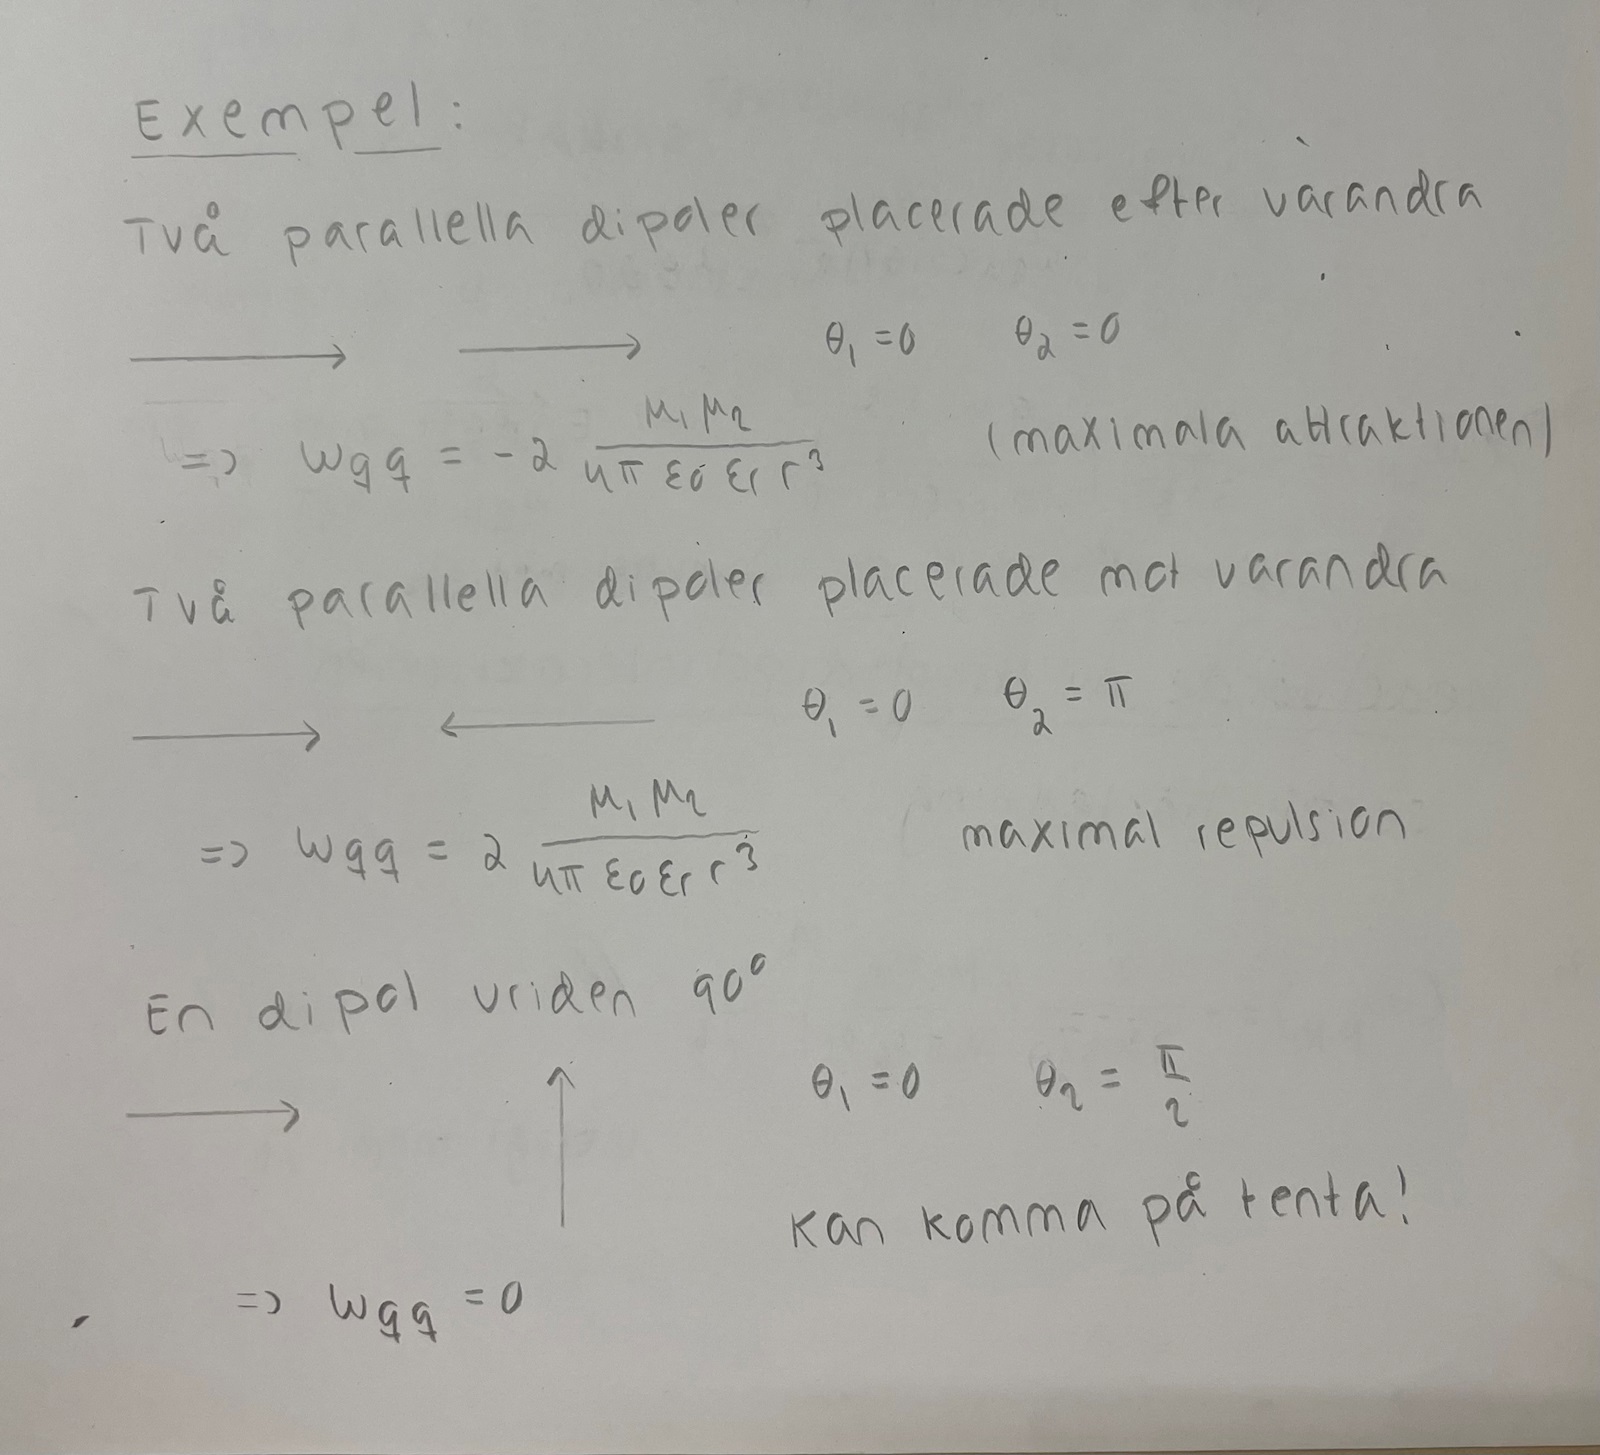 Exempel:
Två parallella dipoler placerade efter varandra
θ₁ = 0 θ₂ = 0
=> Wqq = -2 μ₁μ₂ / 4π ε₀ εr r³ (maximala attraktionen)
Två parallella dipoler placerade mot varandra
θ₁ = 0 θ₂ = π
=> Wqq = 2 μ₁μ₂ / 4π ε₀ εr r³ maximal repulsion
En dipol vriden 90°
θ₁ = 0 θ₂ = π/2
Kan komma på tenta!
=> Wqq = 0